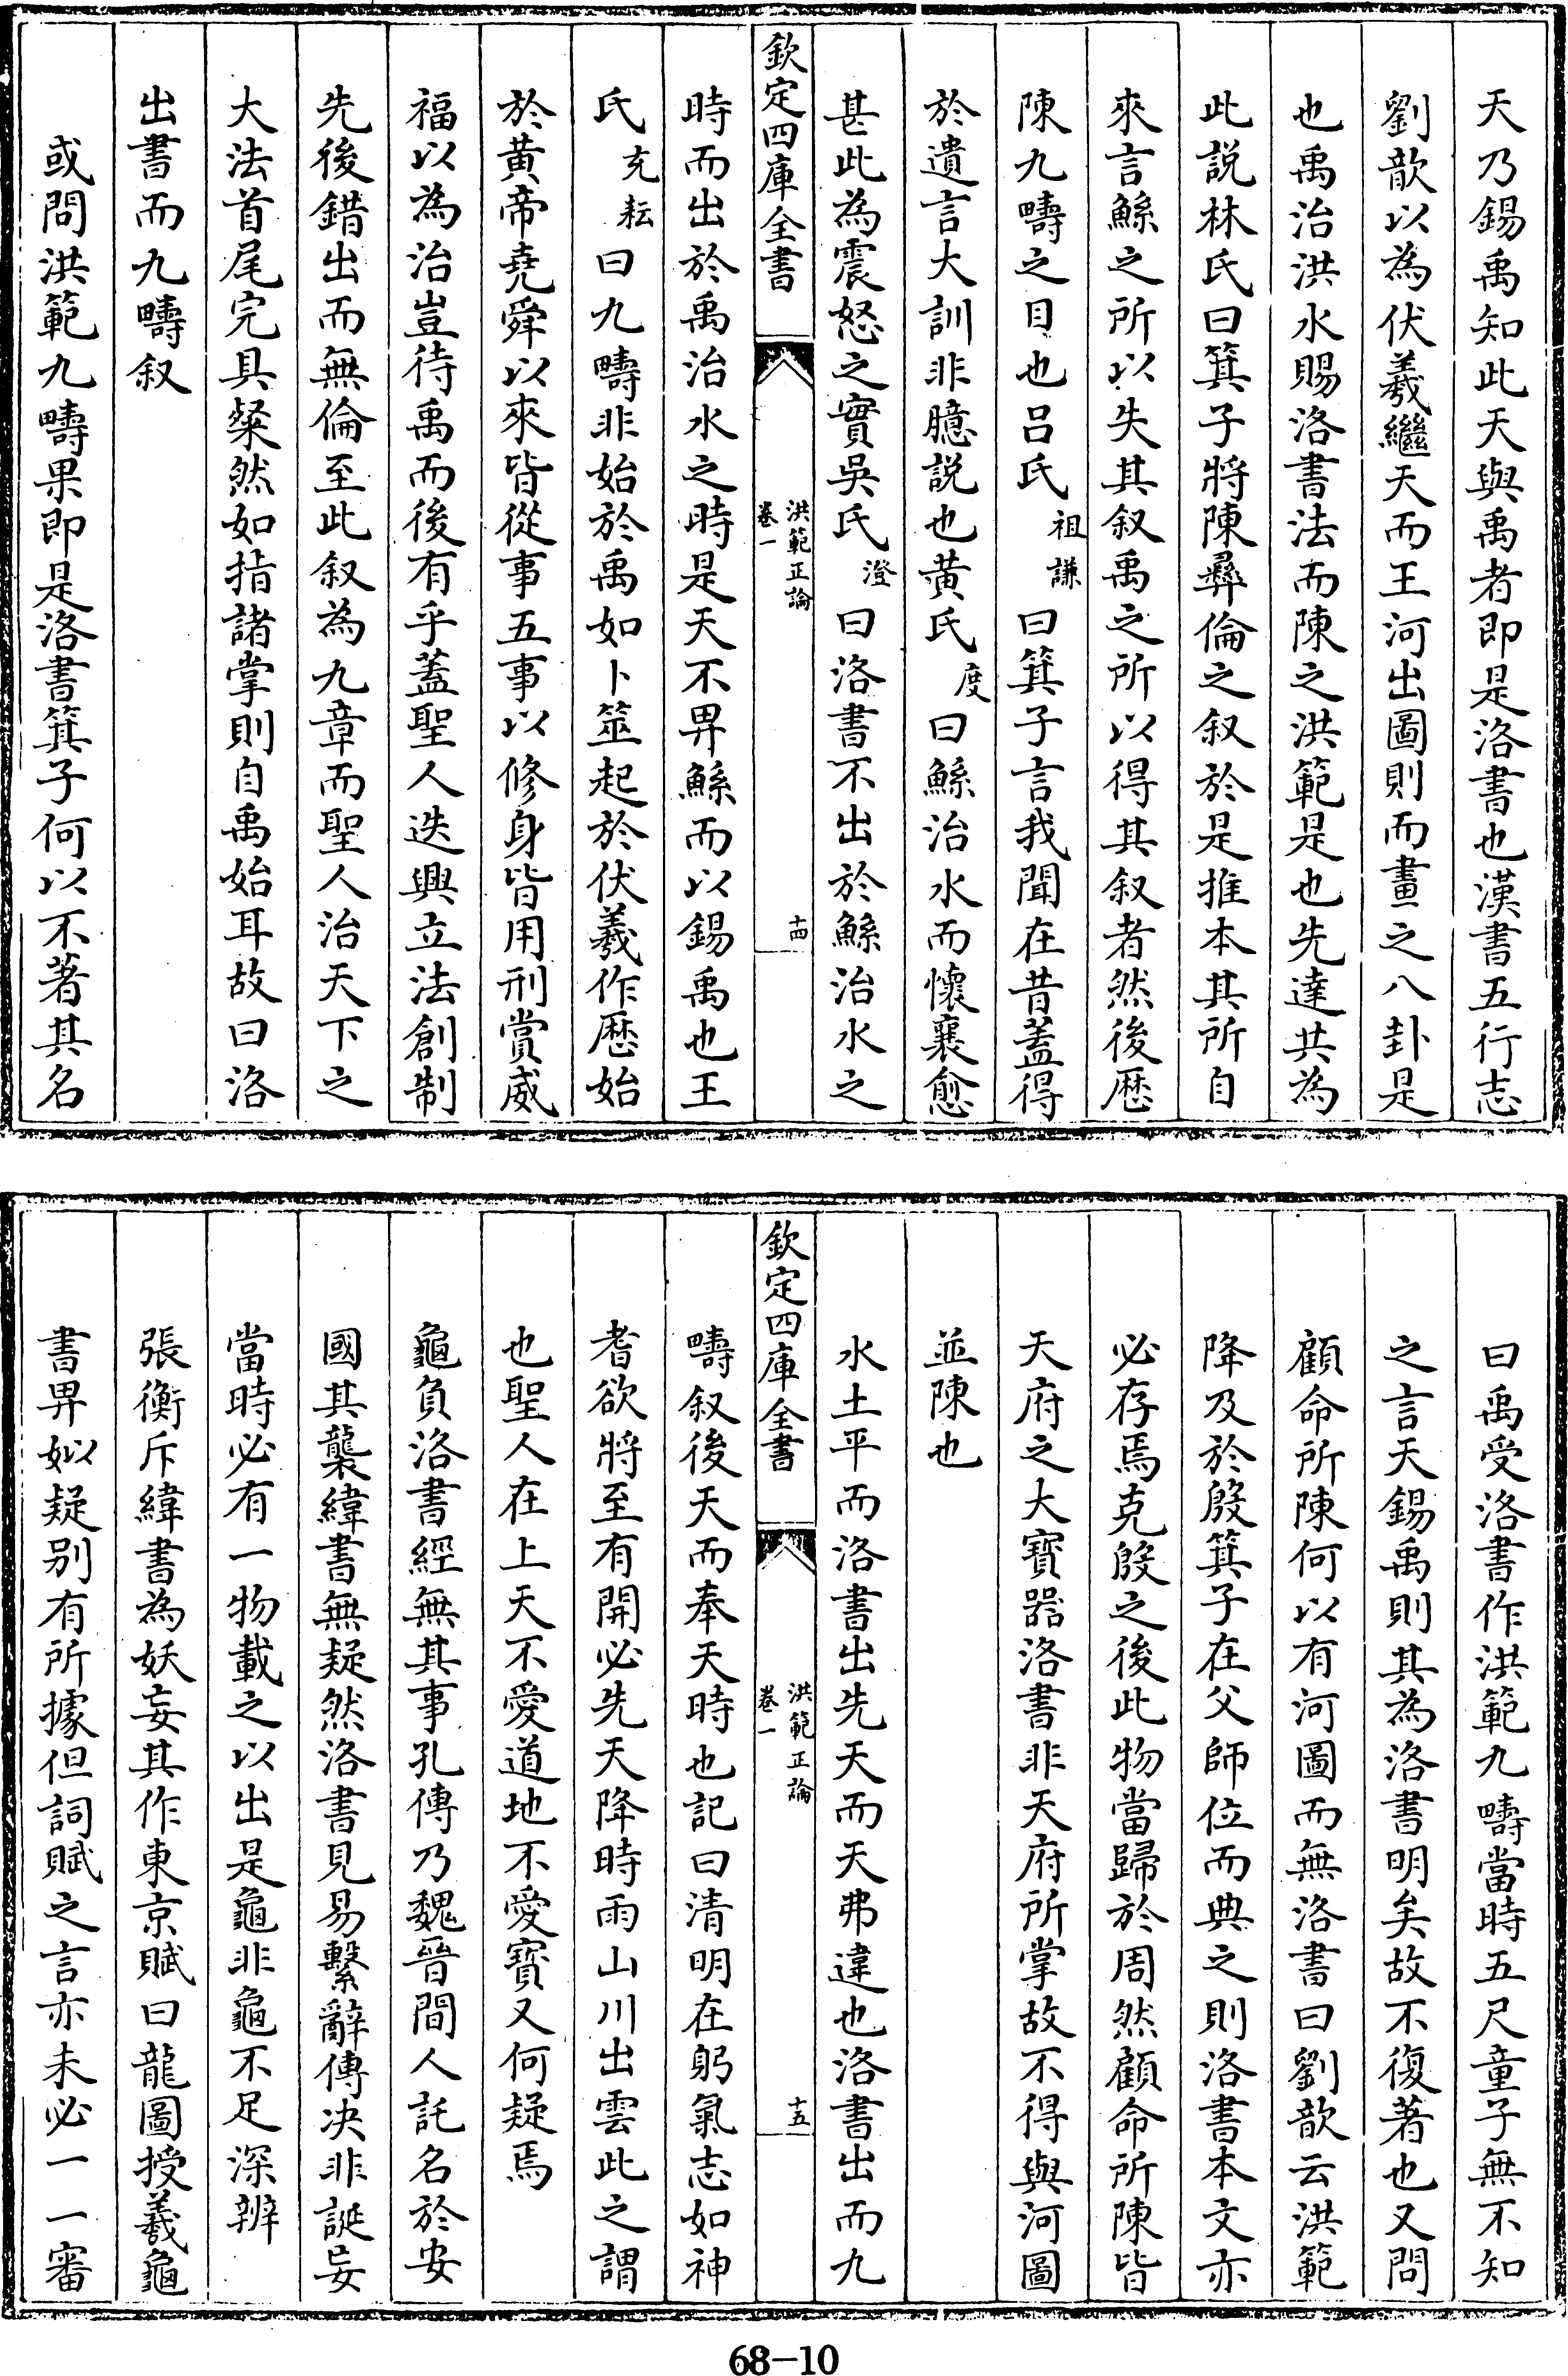 天乃錫禹知此天與禹者即是洛書也漢書五行志
劉歆以為伏羲繼天而王河出圖則而畫之八卦是
也禹治洪水賜洛書法而陳之洪範是也先達共為
此説林氏曰箕子將陳彞倫之叙於是推本其所自
來言鯀之所以失其叙禹之所以得其叙者然後歴
陳九疇之目也吕氏祖謙曰箕子言我聞在昔蓋得
於遺言大訓非臆説也黄氏度曰鯀治水而懷襄愈
甚此為震怒之實吳氏澄曰洛書不出於鯀治水之
欽定四庫全書 洪範正論 卷一 十四
時而出於禹治水之時是天不畀鯀而以錫禹也王
氏充耘曰九疇非始於禹如卜筮起於伏羲作歴始
於黄帝堯舜以來皆從事五事以修身皆用刑賞威
福以為治豈待禹而後有乎蓋聖人迭興立法創制
先後錯出而無倫至此叙為九章而聖人治天下之
大法首尾完具粲然如指諸掌則自禹始耳故曰洛
出書而九疇叙
或問洪範九疇果即是洛書箕子何以不著其名
曰禹受洛書作洪範九疇當時五尺童子無不知
之言天錫禹則其為洛書明矣故不復著也又問
顧命所陳何以有河圖而無洛書曰劉歆云洪範
降及於殷箕子在父師位而典之則洛書本文亦
必存焉克殷之後此物當歸於周然顧命所陳皆
天府之大寳器洛書非天府所掌故不得與河圖
並陳也
水土平而洛書出先天而天弗違也洛書出而九
欽定四庫全書 洪範正論 卷一 十五
疇叙後天而奉天時也記曰清明在躬氣志如神
耆欲將至有開必先天降時雨山川出雲此之謂
也聖人在上天不愛道地不愛寳又何疑焉
龜負洛書經無其事孔傳乃魏晉間人託名於安
國其襲緯書無疑然洛書見易繫辭傳决非誕妄
當時必有一物載之以出是龜非龜不足深辨
張衡斥緯書為妖妄其作東京賦曰龍圖授羲龜
書畀姒疑别有所據但詞賦之言亦未必一一審
68-10